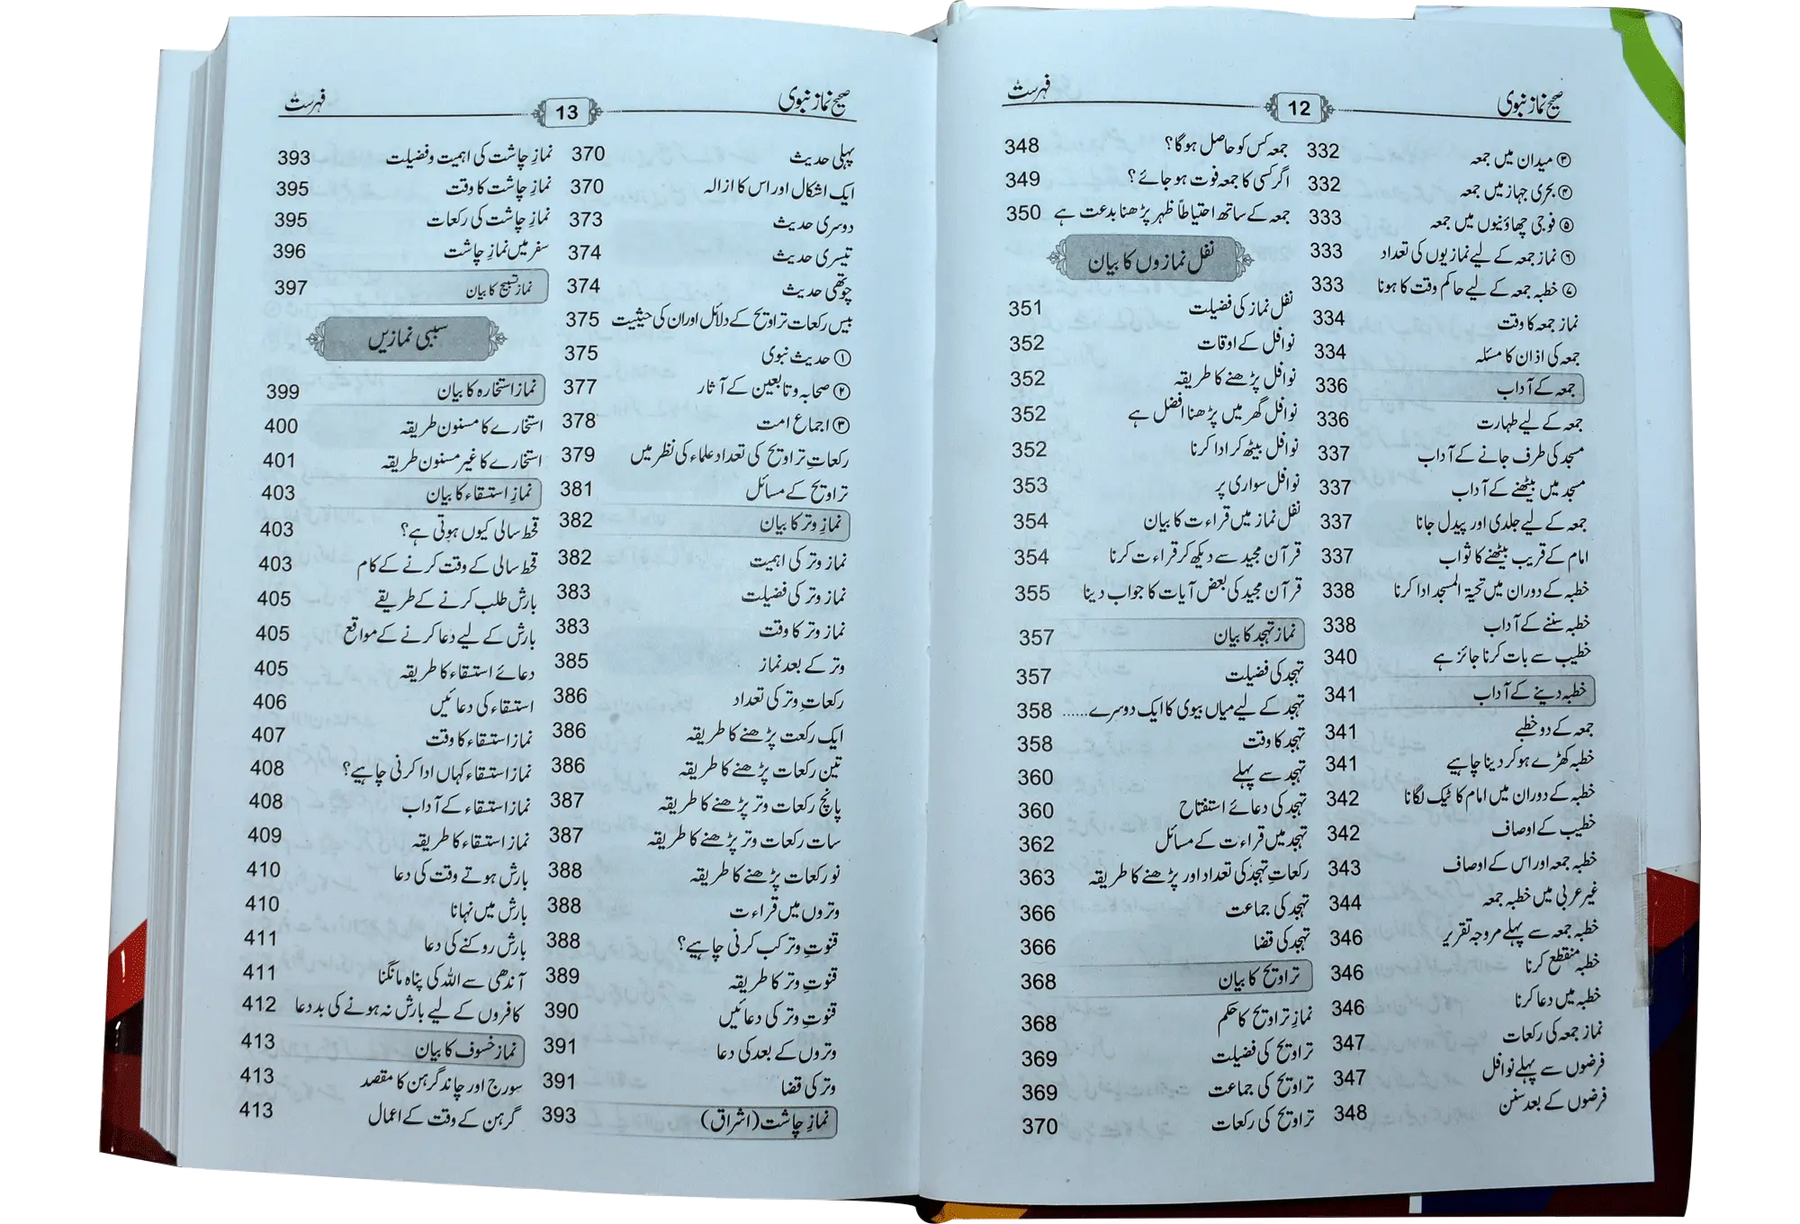 صحیح نماز نبوی 12 فہرست
③ میدان میں جمعہ 332
④ بحری جہاز میں جمعہ 332
⑤ فوجی چھاؤنیوں میں جمعہ 333
⑥ نماز جمعہ کے لیے نمازیوں کی تعداد 333
⑦ خطبہ جمعہ کے لیے حاکم وقت کا ہونا 333
نماز جمعہ کا وقت 334
جمعہ کی اذان کا مسئلہ 334
جمعہ کے آداب 336
جمعہ کے لیے طہارت 336
مسجد کی طرف جانے کے آداب 337
مسجد میں بیٹھنے کے آداب 337
جمعہ کے لیے جلدی اور پیدل جانا 337
امام کے قریب بیٹھنے کا ثواب 337
خطبہ کے دوران میں تحیۃ المسجد ادا کرنا 338
خطبہ سننے کے آداب 338
خطیب سے بات کرنا جائز ہے 340
خطبہ دینے کے آداب 341
جمعہ کے دو خطبے 341
خطبہ کھڑے ہو کر دینا چاہیے 341
خطبہ کے دوران میں امام کا ٹیک لگانا 342
خطیب کے اوصاف 342
خطبہ جمعہ اور اس کے اوصاف 343
غیر عربی میں خطبہ جمعہ 344
خطبہ جمعہ سے پہلے مروجہ تقریر 346
خطبہ منقطع کرنا 346
خطبہ میں دعا کرنا 346
نماز جمعہ کی رکعات 347
فرضوں سے پہلے نوافل 347
فرضوں کے بعد سنن 348
جمعہ کس کو حاصل ہوگا؟ 348
اگر کسی کا جمعہ فوت ہو جائے؟ 349
جمعہ کے ساتھ احتیاطاً ظہر پڑھنا بدعت ہے 350
نفل نمازوں کا بیان
نفل نماز کی فضیلت 351
نوافل کے اوقات 352
نوافل پڑھنے کا طریقہ 352
نوافل گھر میں پڑھنا افضل ہے 352
نوافل بیٹھ کر ادا کرنا 352
نوافل سواری پر 353
نفل نماز میں قراءت کا بیان 354
قرآن مجید سے دیکھ کر قراءت کرنا 354
قرآن مجید کی بعض آیات کا جواب دینا 355
نماز تہجد کا بیان 357
تہجد کی فضیلت 357
تہجد کے لیے میاں بیوی کا ایک دوسرے...... 358
تہجد کا وقت 358
تہجد سے پہلے 360
تہجد کی دعائے استفتاح 360
تہجد میں قراءت کے مسائل 362
رکعاتِ تہجد کی تعداد اور پڑھنے کا طریقہ 363
تہجد کی جماعت 366
تہجد کی قضا 366
تراویح کا بیان 368
نمازِ تراویح کا حکم 368
تراویح کی فضیلت 369
تراویح کی جماعت 369
تراویح کی رکعات 370
صحیح نماز نبوی 13 فہرست
پہلی حدیث 370
ایک اشکال اور اس کا ازالہ 370
دوسری حدیث 373
تیسری حدیث 374
چوتھی حدیث 374
بیس رکعات تراویح کے دلائل اور ان کی حیثیت 375
① حدیث نبوی 375
② صحابہ و تابعین کے آثار 377
③ اجماع امت 378
رکعاتِ تراویح کی تعداد علماء کی نظر میں 379
تراویح کے مسائل 381
نمازِ وتر کا بیان 382
نماز وتر کی اہمیت 382
نماز وتر کی فضیلت 383
نماز وتر کا وقت 383
وتر کے بعد نماز 385
رکعاتِ وتر کی تعداد 386
ایک رکعت پڑھنے کا طریقہ 386
تین رکعات پڑھنے کا طریقہ 386
پانچ رکعات وتر پڑھنے کا طریقہ 387
سات رکعات وتر پڑھنے کا طریقہ 387
نو رکعات پڑھنے کا طریقہ 388
وتروں میں قراءت 388
قنوتِ وتر کب کرنی چاہیے؟ 388
قنوتِ وتر کا طریقہ 389
قنوتِ وتر کی دعائیں 390
وتروں کے بعد کی دعا 391
وتر کی قضا 391
نمازِ چاشت (اشراق) 393
نمازِ چاشت کی اہمیت و فضیلت 393
نمازِ چاشت کا وقت 395
نمازِ چاشت کی رکعات 395
سفر میں نمازِ چاشت 396
نماز تسبیح کا بیان 397
سببی نمازیں
نمازِ استخارہ کا بیان 399
استخارے کا مسنون طریقہ 400
استخارے کا غیر مسنون طریقہ 401
نمازِ استسقاء کا بیان 403
قحط سالی کیوں ہوتی ہے؟ 403
قحط سالی کے وقت کرنے کے کام 403
بارش طلب کرنے کے طریقے 405
بارش کے لیے دعا کرنے کے مواقع 405
دعائے استسقاء کا طریقہ 405
استسقاء کی دعائیں 406
نماز استسقاء کا وقت 407
نماز استسقاء کہاں ادا کرنی چاہیے؟ 408
نماز استسقاء کے آداب 408
نماز استسقاء کا طریقہ 409
بارش ہوتے وقت کی دعا 410
بارش میں نہانا 410
بارش روکنے کی دعا 411
آندھی سے اللہ کی پناہ مانگنا 411
کافروں کے لیے بارش نہ ہونے کی بددعا 412
نمازِ خسوف کا بیان 413
سورج اور چاند گرہن کا مقصد 413
گرہن کے وقت کے اعمال 413